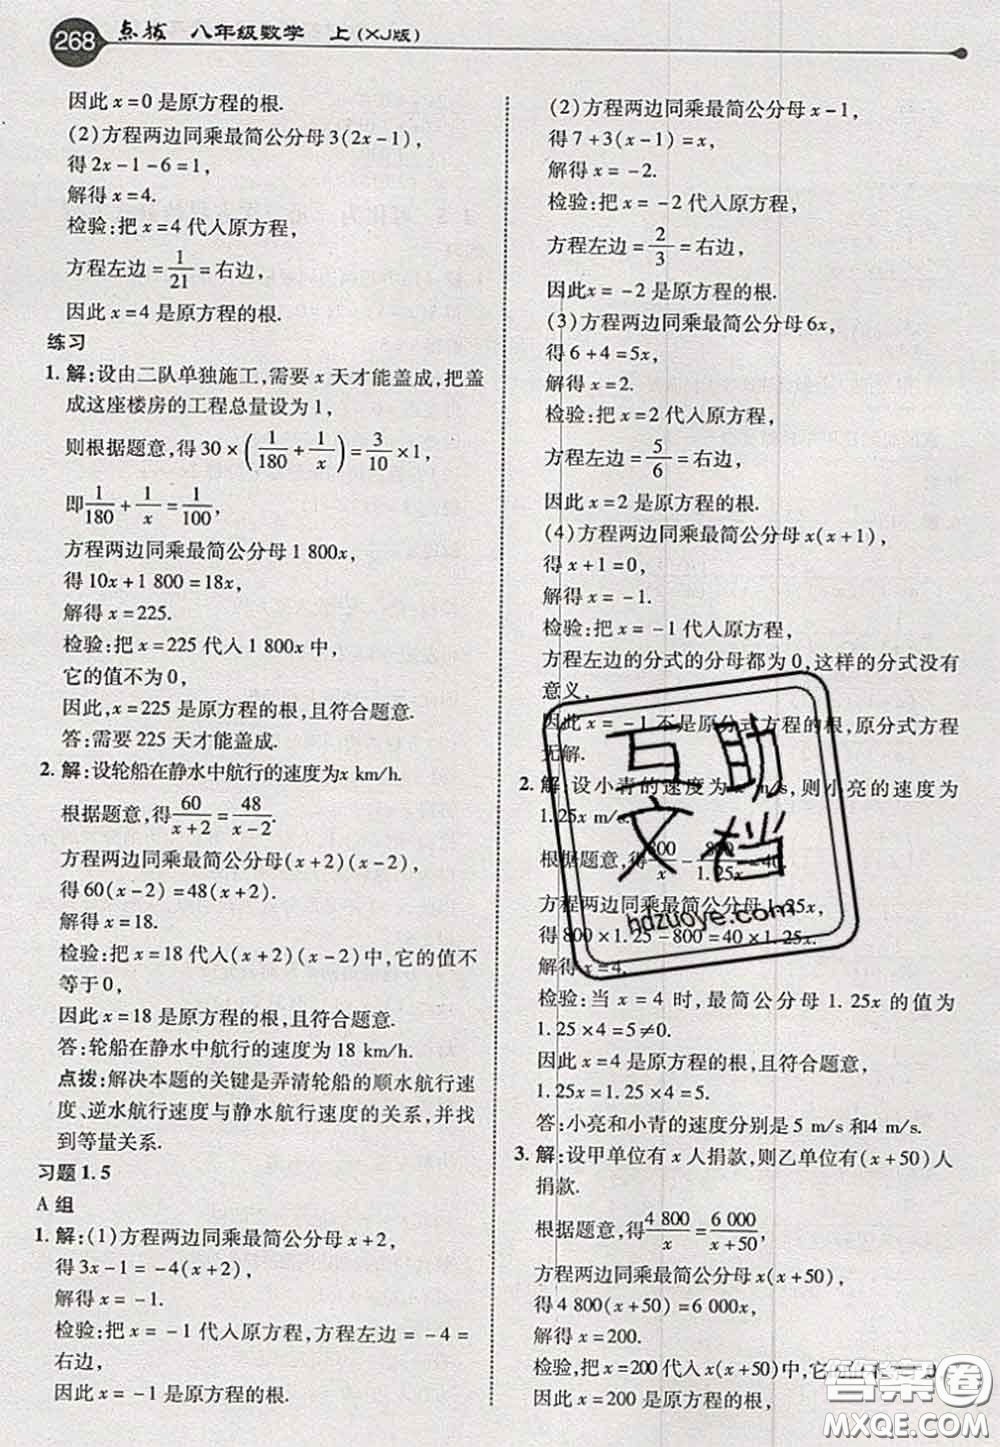 268 点拨 八年级数学 上(XJ版)
因此 x=0 是原方程的根.
(2)方程两边同乘最简公分母 3(2x-1),
得 2x-1-6=1,
解得 x=4.
检验:把 x=4 代入原方程,
方程左边=1/21=右边,
因此 x=4 是原方程的根.
练习
1. 解:设由二队单独施工,需要 x 天才能盖成,把盖
成这座楼房的工程总量设为 1,
则根据题意,得 30×(1/180+1/x)=3/10×1,
即1/180+1/x=1/100,
方程两边同乘最简公分母 1 800x,
得 10x+1 800=18x,
解得 x=225.
检验:把 x=225 代入 1 800x 中,
它的值不为 0,
因此,x=225 是原方程的根,且符合题意.
答:需要 225 天才能盖成.
2. 解:设轮船在静水中航行的速度为x km/h.
根据题意,得60/(x+2)=48/(x-2).
方程两边同乘最简公分母(x+2)(x-2),
得 60(x-2)=48(x+2).
解得 x=18.
检验:把 x=18 代入(x+2)(x-2)中,它的值不
等于 0,
因此 x=18 是原方程的根,且符合题意.
答:轮船在静水中航行的速度为 18 km/h.
点拨:解决本题的关键是弄清轮船的顺水航行速
度、逆水航行速度与静水航行速度的关系,并找
到等量关系.
习题 1.5
A 组
1. 解:(1)方程两边同乘最简公分母 x+2,
得 3x-1=-4(x+2),
解得 x=-1.
检验:把 x=-1 代入原方程,方程左边=-4=
右边,
因此 x=-1 是原方程的根.
(2)方程两边同乘最简公分母 x-1,
得 7+3(x-1)=x,
解得 x=-2.
检验:把 x=-2 代入原方程,
方程左边=2/3=右边,
因此x=-2 是原方程的根.
(3)方程两边同乘最简公分母 6x,
得 6+4=5x,
解得 x=2.
检验:把 x=2 代入原方程,
方程左边=5/6=右边,
因此 x=2 是原方程的根.
(4)方程两边同乘最简公分母 x(x+1),
得 x+1=0,
解得 x=-1.
检验:把 x=-1 代入原方程,
方程左边的分式的分母都为 0,这样的分式没有
意义,
因此 x=-1 不是原分式方程的根,原分式方程
无解.
2. 解:设小青的速度为 x m/s,则小亮的速度为
1.25x m/s.
根据题意,得800/x-800/1.25x=40.
方程两边同乘最简公分母 1.25x,
得 800×1.25-800=40×1.25x.
解得 x=4.
检验:当 x=4 时,最简公分母 1.25x 的值为
1.25×4=5≠0.
因此 x=4 是原方程的根,且符合题意,
1.25x=1.25×4=5.
答:小亮和小青的速度分别是 5 m/s 和4 m/s.
3. 解:设甲单位有 x 人捐款,则乙单位有(x+50)人
捐款.
根据题意,得4 800/x=6 000/(x+50),
方程两边同乘最简公分母 x(x+50),
得 4 800(x+50)=6 000x,
解得 x=200.
检验,把 x=200 代入 x(x+50)中,它
因此 x=200 是原方程的根,
互助
文档
hdzuoye.com
答案圈
MXQE.COM